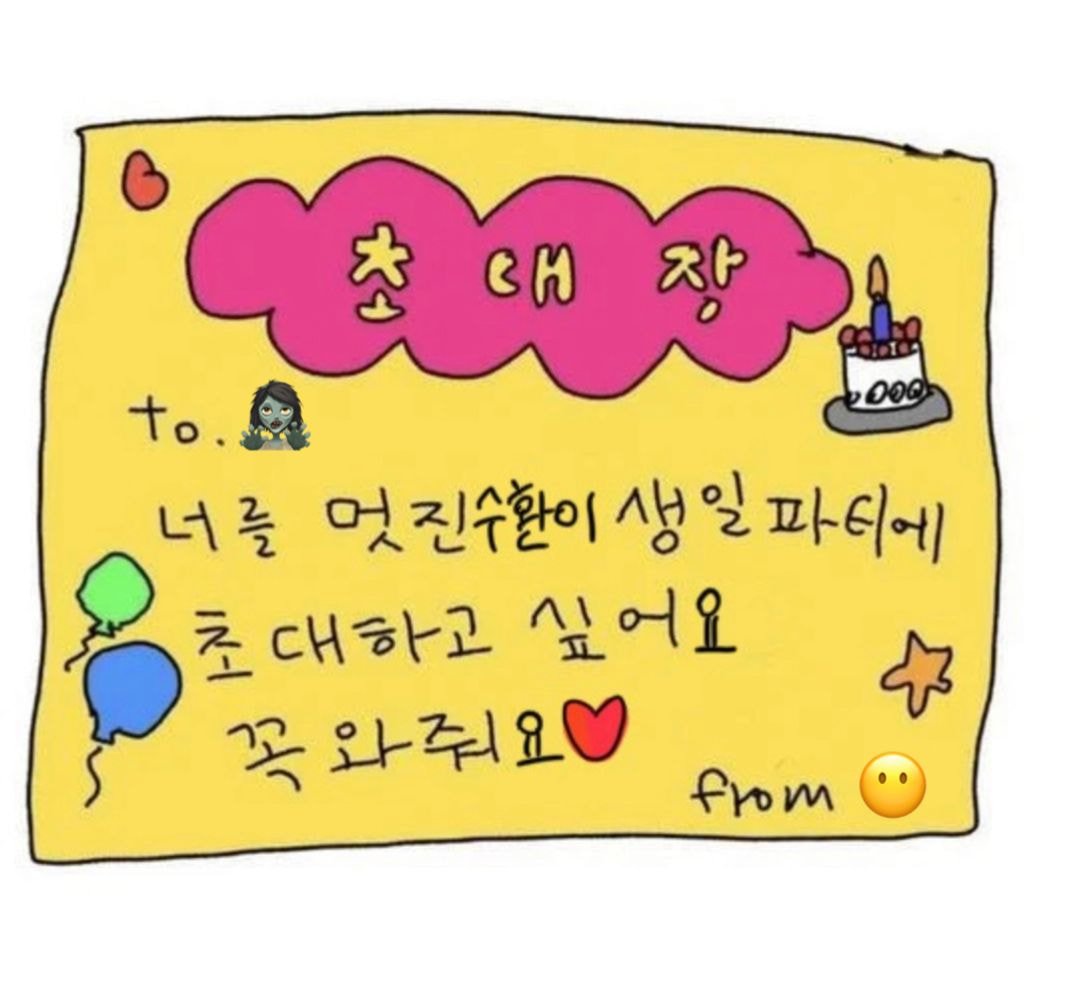 초대장
to. 🧟‍♀️
너를 멋진수환이 생일파티에
초대하고 싶어요
꼭 와줘요❤️
from 😶